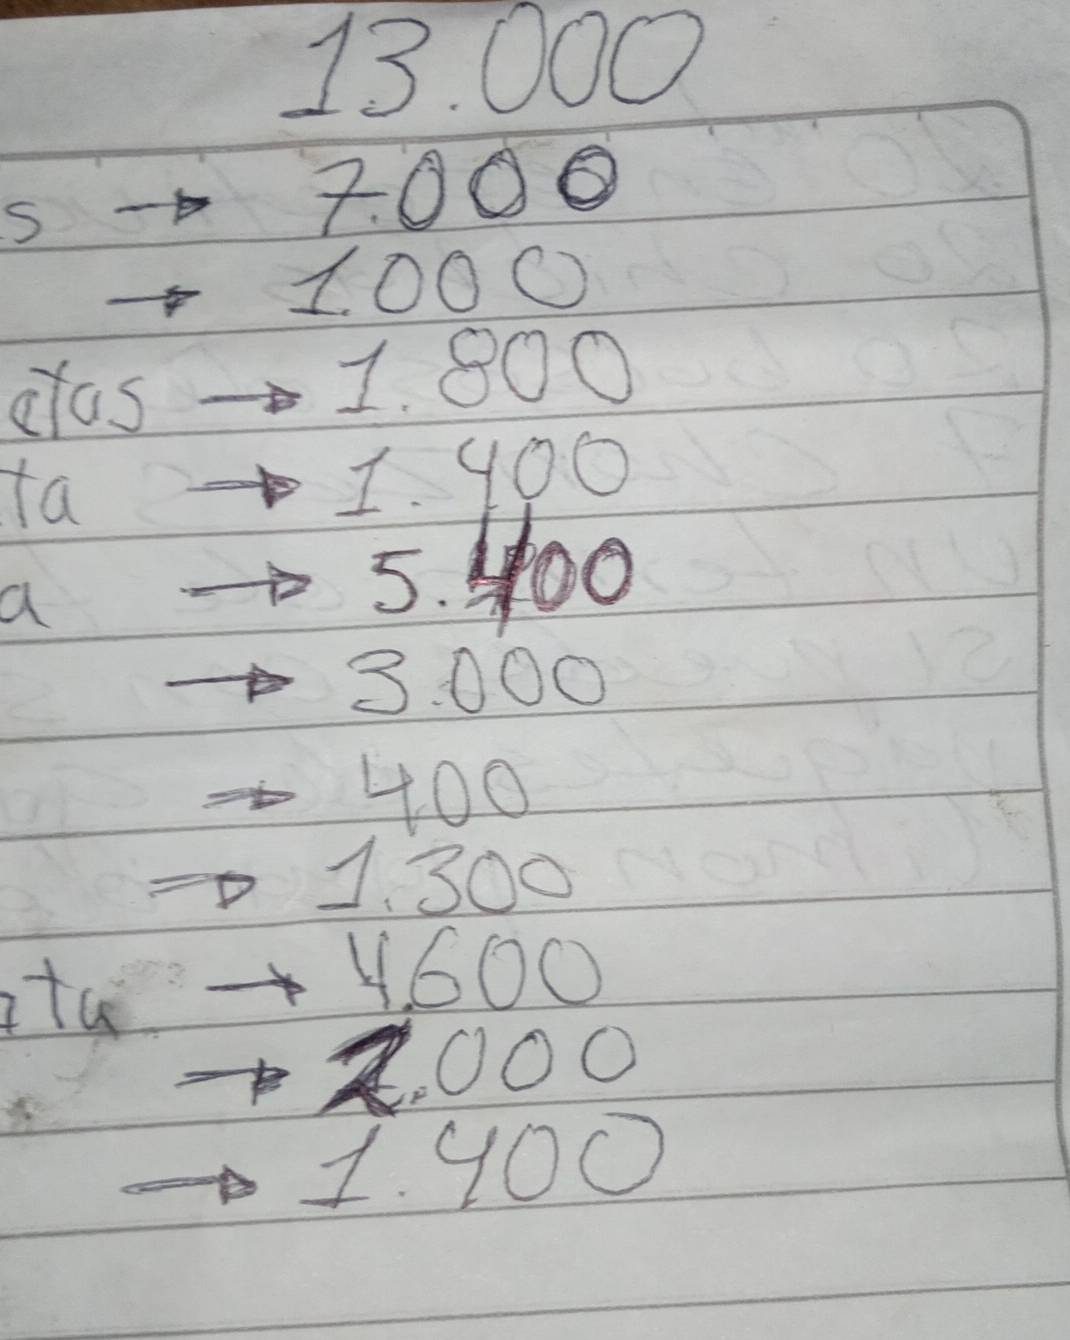 13.000
s → 7.000
→ 1.000
etas → 1.800
ta → 1.400
a → 5.400
→ 3.000
→ 400
→ 1.300
ta → 4.600
→ 2.000
→ 1.400